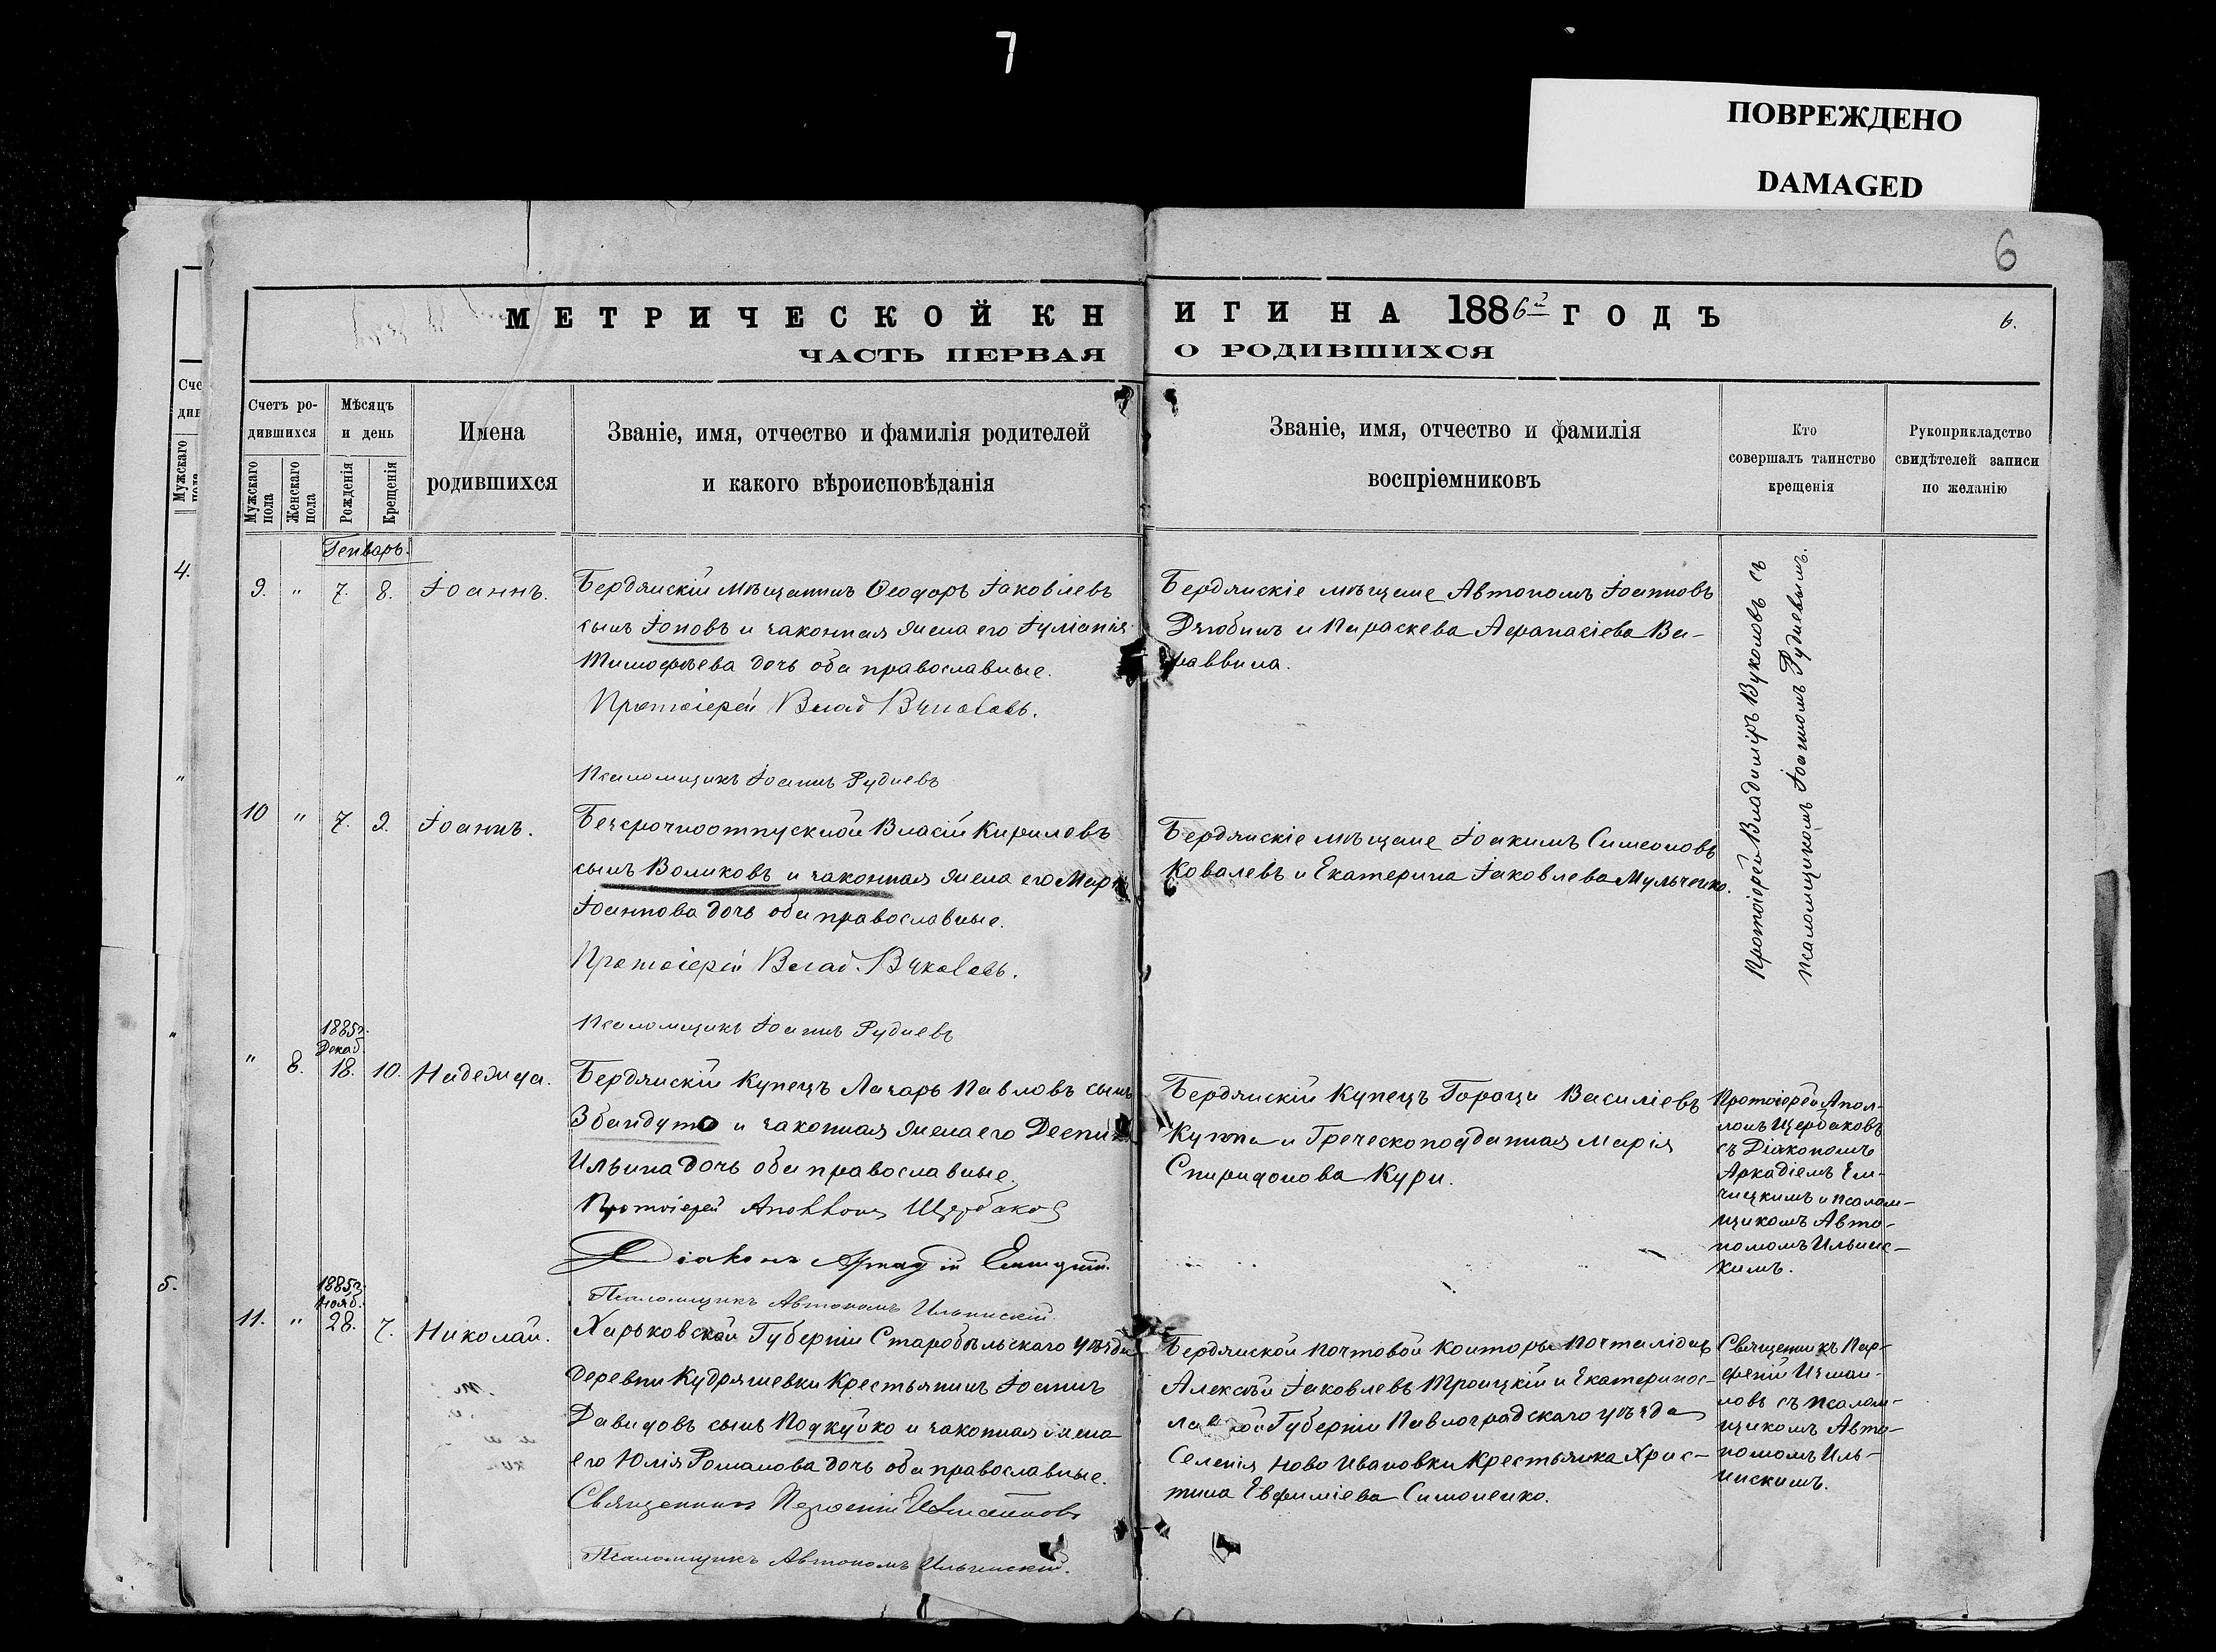 7
ПОВРЕЖДЕНО
DAMAGED
6
МЕТРИЧЕСКОЙ КНИГИ НА 1886й ГОДЪ
6.
ЧАСТЬ ПЕРВАЯ О РОДИВШИХСЯ
Счетъ ро-
дившихся
Мужскаго пола
Женскаго пола
Мѣсяцъ
и день
Рожденія
Крещенія
Имена
родившихся
Званіе, имя, отчество и фамилія родителей
и какого вѣроисповѣданія
Званіе, имя, отчество и фамилія
воспріемниковъ
Кто
совершалъ таинство
крещенія
Рукоприкладство
свидѣтелей записи
по желанію
Генварь.
9. " 7. 8. Іоаннъ.
Бердянскій мѣщанинъ Ѳеодоръ Іаковлевъ
сынъ Іоновъ и законная жена его Іуліанія
Тимофѣева дочь оба православные.
Протоіерей Влад Вуколовъ.
Псаломщикъ Іоаннъ Рудневъ
Бердянскіе мѣщане Автономъ Іоанновъ
Дзюбинъ и Параскева Афанасіева Ва-
раввина.
Протоіерей Владиміръ Вуколовъ съ
псаломщикомъ Іоанномъ Рудневымъ.
10 " 7. 9. Іоаннъ.
Безсрочноотпускной Власій Кириловъ
сынъ Воликовъ и законная жена его Марія
Іоаннова дочь оба православные.
Протоіерей Влад. Вуколовъ.
Псаломщикъ Іоаннъ Рудневъ
Бердянскіе мѣщане Іоакимъ Симеоновъ
Ковалевъ и Екатерина Іаковлева Мульченко.
1885г.
Декаб.
" 8. 18. 10. Надежда.
Бердянскій Купецъ Лазарь Павловъ сынъ
Збандуто и законная жена его Деспина
Ильина дочь оба православные.
Протоіерей Аполлонъ Щербаковъ
Діаконъ Аркадій
Псаломщикъ Автономъ Ильинскій.
Бердянскій Купецъ Горацы Василіевъ
Куппа и Греческоподданная Марія
Спиридонова Кури.
Протоіерей Апол-
лонъ Щербаковъ
съ Діакономъ
Аркадіемъ Ем-
чицкимъ и псалом-
щикомъ Авто-
номомъ Ильинс-
кимъ.
5.
1885г.
Нояб.
11. " 28. 7. Николай.
Харьковской Губерніи Старобѣльскаго уѣзда
деревни Кудряшевки Крестьянинъ Іоаннъ
Давидовъ сынъ Подкуйко и законная жена
его Юлія Романова дочь оба православные.
Священникъ Парфеній Измаиловъ
Псаломщикъ Автономъ Ильинскій.
Бердянской почтовой Конторы Почталіонъ
Алексѣй Іаковлевъ Троицкій и Екатеринос-
лавской Губерніи Павлоградскаго уѣзда
Селенія Ново Ивановки Крестьянка Хрис-
тина Евфиміева Симоненко.
Священникъ Пар-
феній Измаи-
ловъ съ псалом-
щикомъ Авто-
номомъ Иль-
инскимъ.